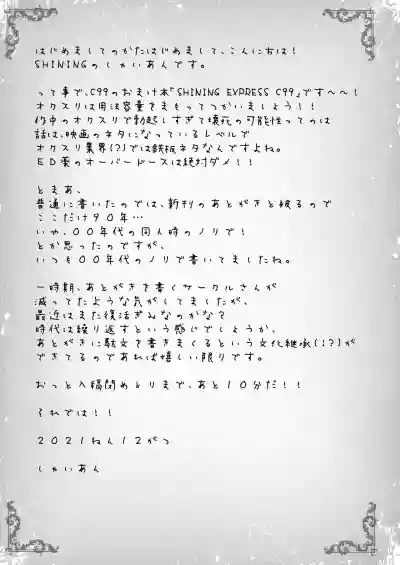 はじめましてのかたはじめまして、こんにちは!
SHININGのしかいあんです。
って事で、C99のおまけ本「SHINING EXPRESS C99」です~~!
オクスリは用法容量をまもってつかいましょう!!
作中のオクスリで勃起しすぎて壊死の可能性ってのは
話は、映画のネタになっているレベルで
オクスリ業界(?)では鉄板ネタなんですよね。
ED薬のオーバードースは絶対ダメ!!
ともあ、
普通に書いたのでは、新刊のあとがきと被るので
ここだけ90年…
いや、00年代の同人時のノリで!
とか思ったのですが、
いつも00年代のノリで書いてましたね。
一時期、あとがきを書くサークルさんが
減ってたような気がしてましたが、
最近はまた復活ぎみなのかな?
時代は繰り返すという感じでしょうか、
あとがきに駄文を書きまくるという文化継承(!?)が
できてるのであれば嬉しい限りです。
おっと入稿閉めきりまで、あと10分だ!!
それでは!!
2021ねん12がつ
しかいあん